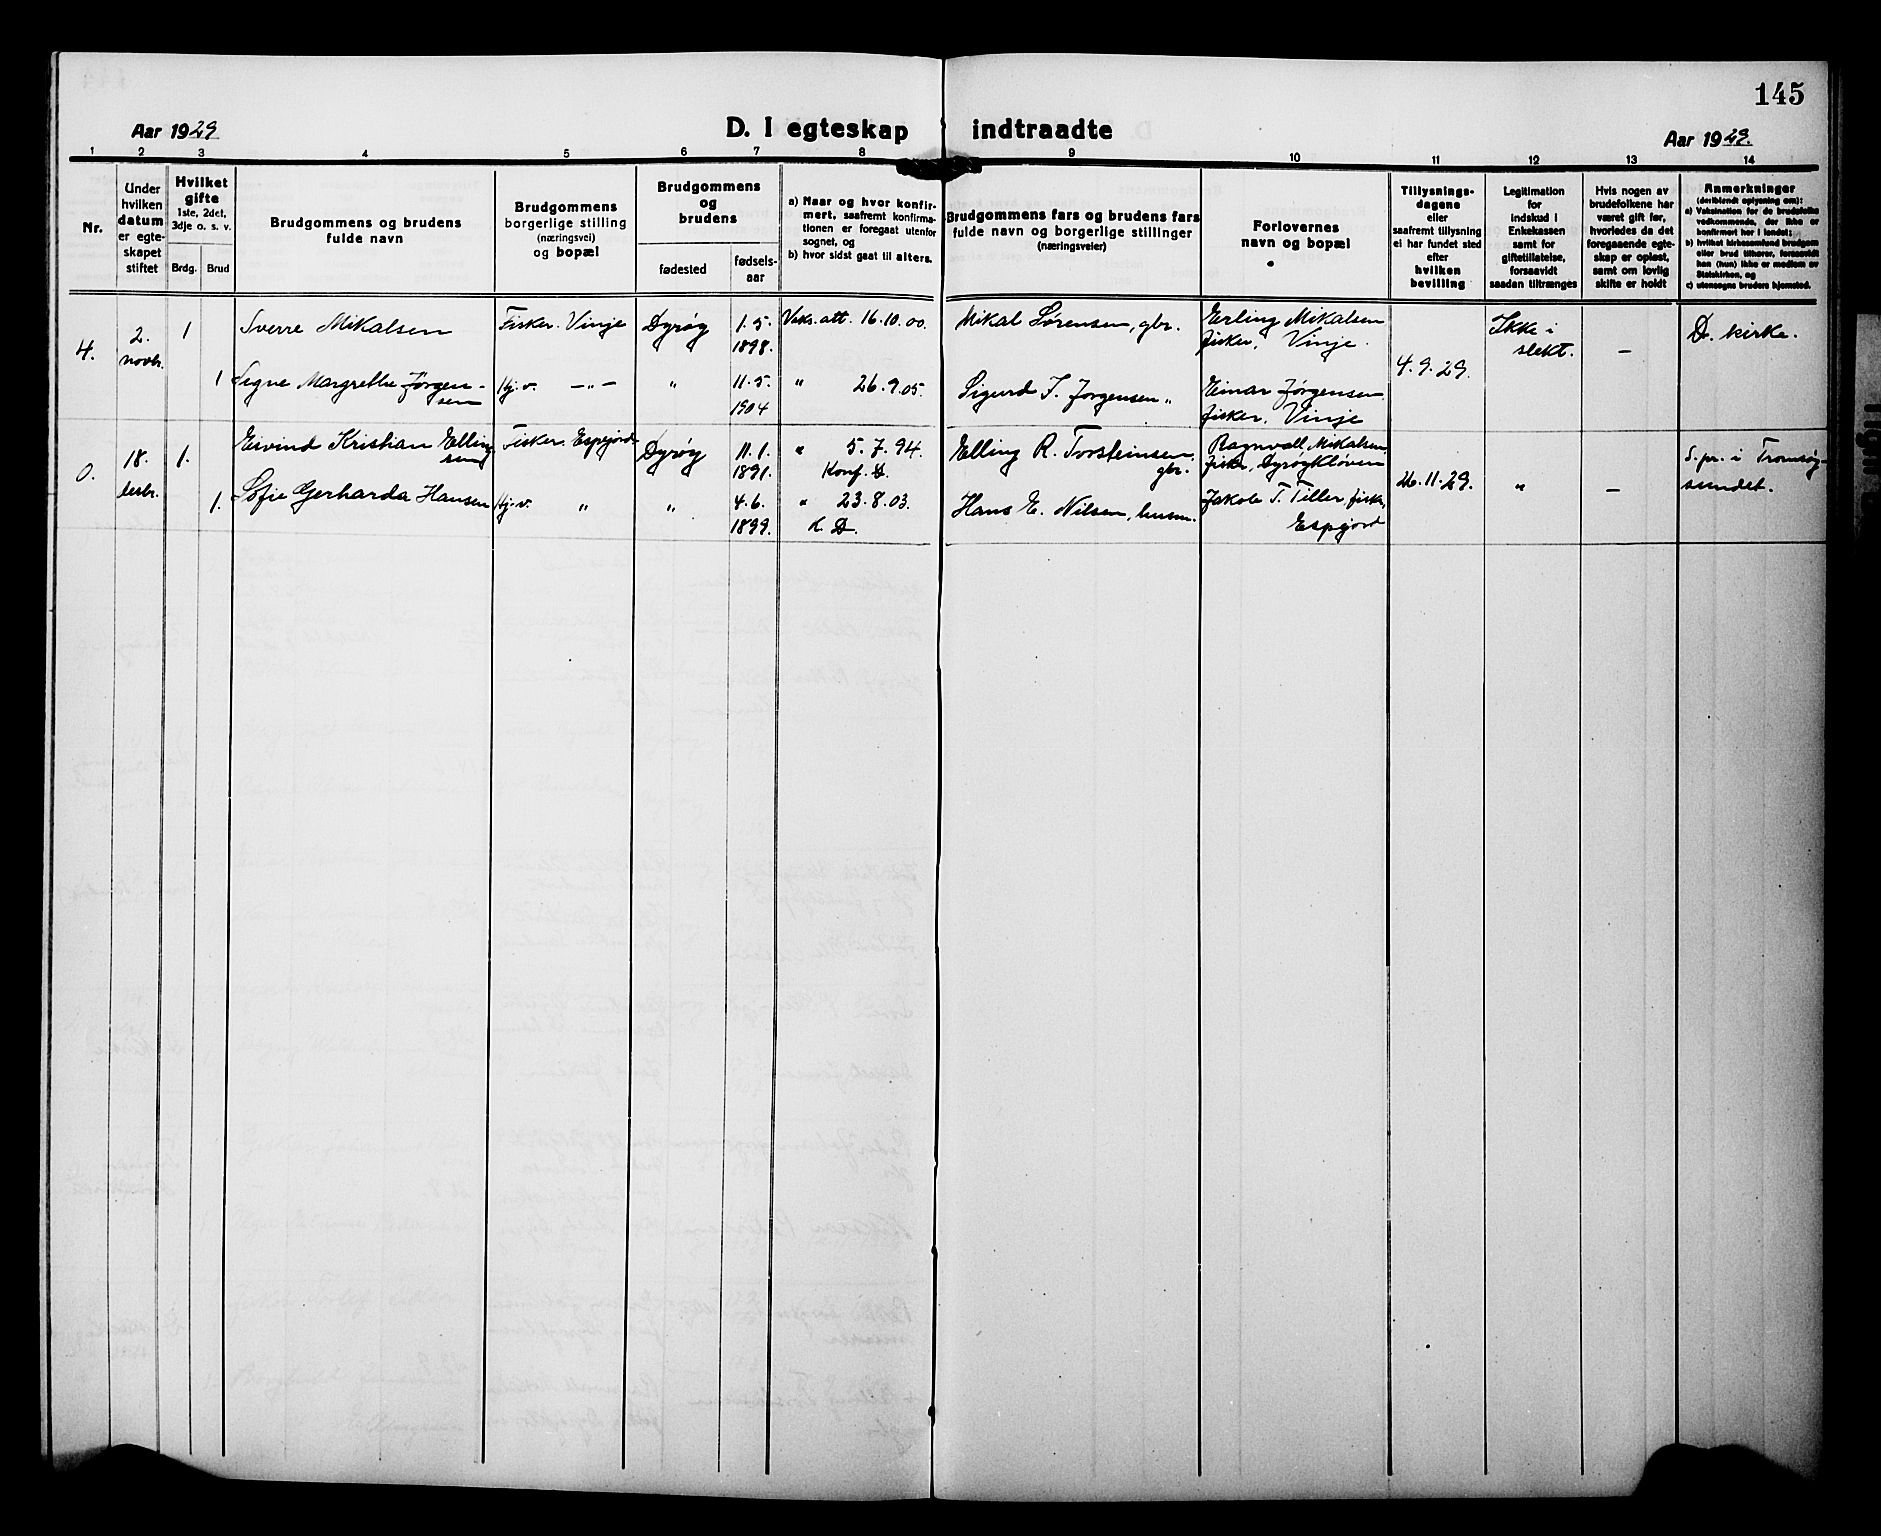 145
Aar 1929
D. I egteskap indtraadte
Aar 1929.
1 2 3 4 5 6 7 8 9 10 11 12 13 14
Nr.
Under
hvilken
datum
er egte-
skapet
stiftet
Hvilket
gifte
1ste, 2det,
3dje o. s. v.
Brdg. Brud
Brudgommens og brudens
fulde navn
Brudgommens
borgerlige stilling
(næringsvei)
og bopæl
Brudgommens
og
brudens
fødested
fødsels-
aar
a) Naar og hvor konfir-
mert, saafremt konfirma-
tionen er foregaat utenfor
sognet, og
b) hvor sidst gaat til alters.
Brudgommens fars og brudens fars
fulde navn og borgerlige stillinger
(næringsveier)
Forlovernes
navn og bopæl
Tillysnings-
dagene
eller
saafremt tillysning
ei har fundet sted
efter
hvilken
bevilling
Legitimation
for
indskud i
Enkekassen
samt for
giftetillatelse,
forsaavidt
saadan tiltrænges
Hvis nogen av
brudefolkene har
været gift før,
hvorledes da det
foregaaende egte-
skap er opløst,
samt om lovlig
skifte er holdt
Anmerkninger
(deriblandt oplysning om):
a) Vaksination for de brudefolks
vedkommende, der ikke er
konfirmert her i landet;
b) hvilket kirkesamfund brudgom
eller brud tilhører, forsaavidt
han (hun) ikke er medlem av
Statskirken, og
c) utensogns bruders hjemsted.
4.
2.
novbr.
1
Sverre Mikalsen
Fisker. Vinje
Dyrøy
1.5.
1898.
Vaks. att. 16.10.00.
Mikal Sørensen, gbr.
Erling Mikalsen
fisker, Vinje.
4.9.29.
Ikke i
slekt.
—
D. kirke.
1
Signe Margrethe Jørgen-
sen
Hj.v. —"—
"
11.5.
1904
" 26.9.05.
Sigurd J. Jørgensen "
Einar Jørgensen
fisker, Vinje
0.
18.
desbr.
1.
Eivind Kristian Elling
sen
Fisker. Espejord
Dyrøy
11.1.
1891.
" 5.7.94.
Konf. D.
Elling R. Torsteinsen
gbr.
Ragnvall Mikalsen
fisker, Dyrøykløven
26.11.29.
"
—
S.pr. i Tromsøy-
sundet.
1.
Sofie Gerharda Hansen
Hj.v. "
"
4.6.
1899.
" 23.8.03.
K. D.
Hans E. Nilsen, husm.
Jakob T. Tiller, fisk.
Espejord